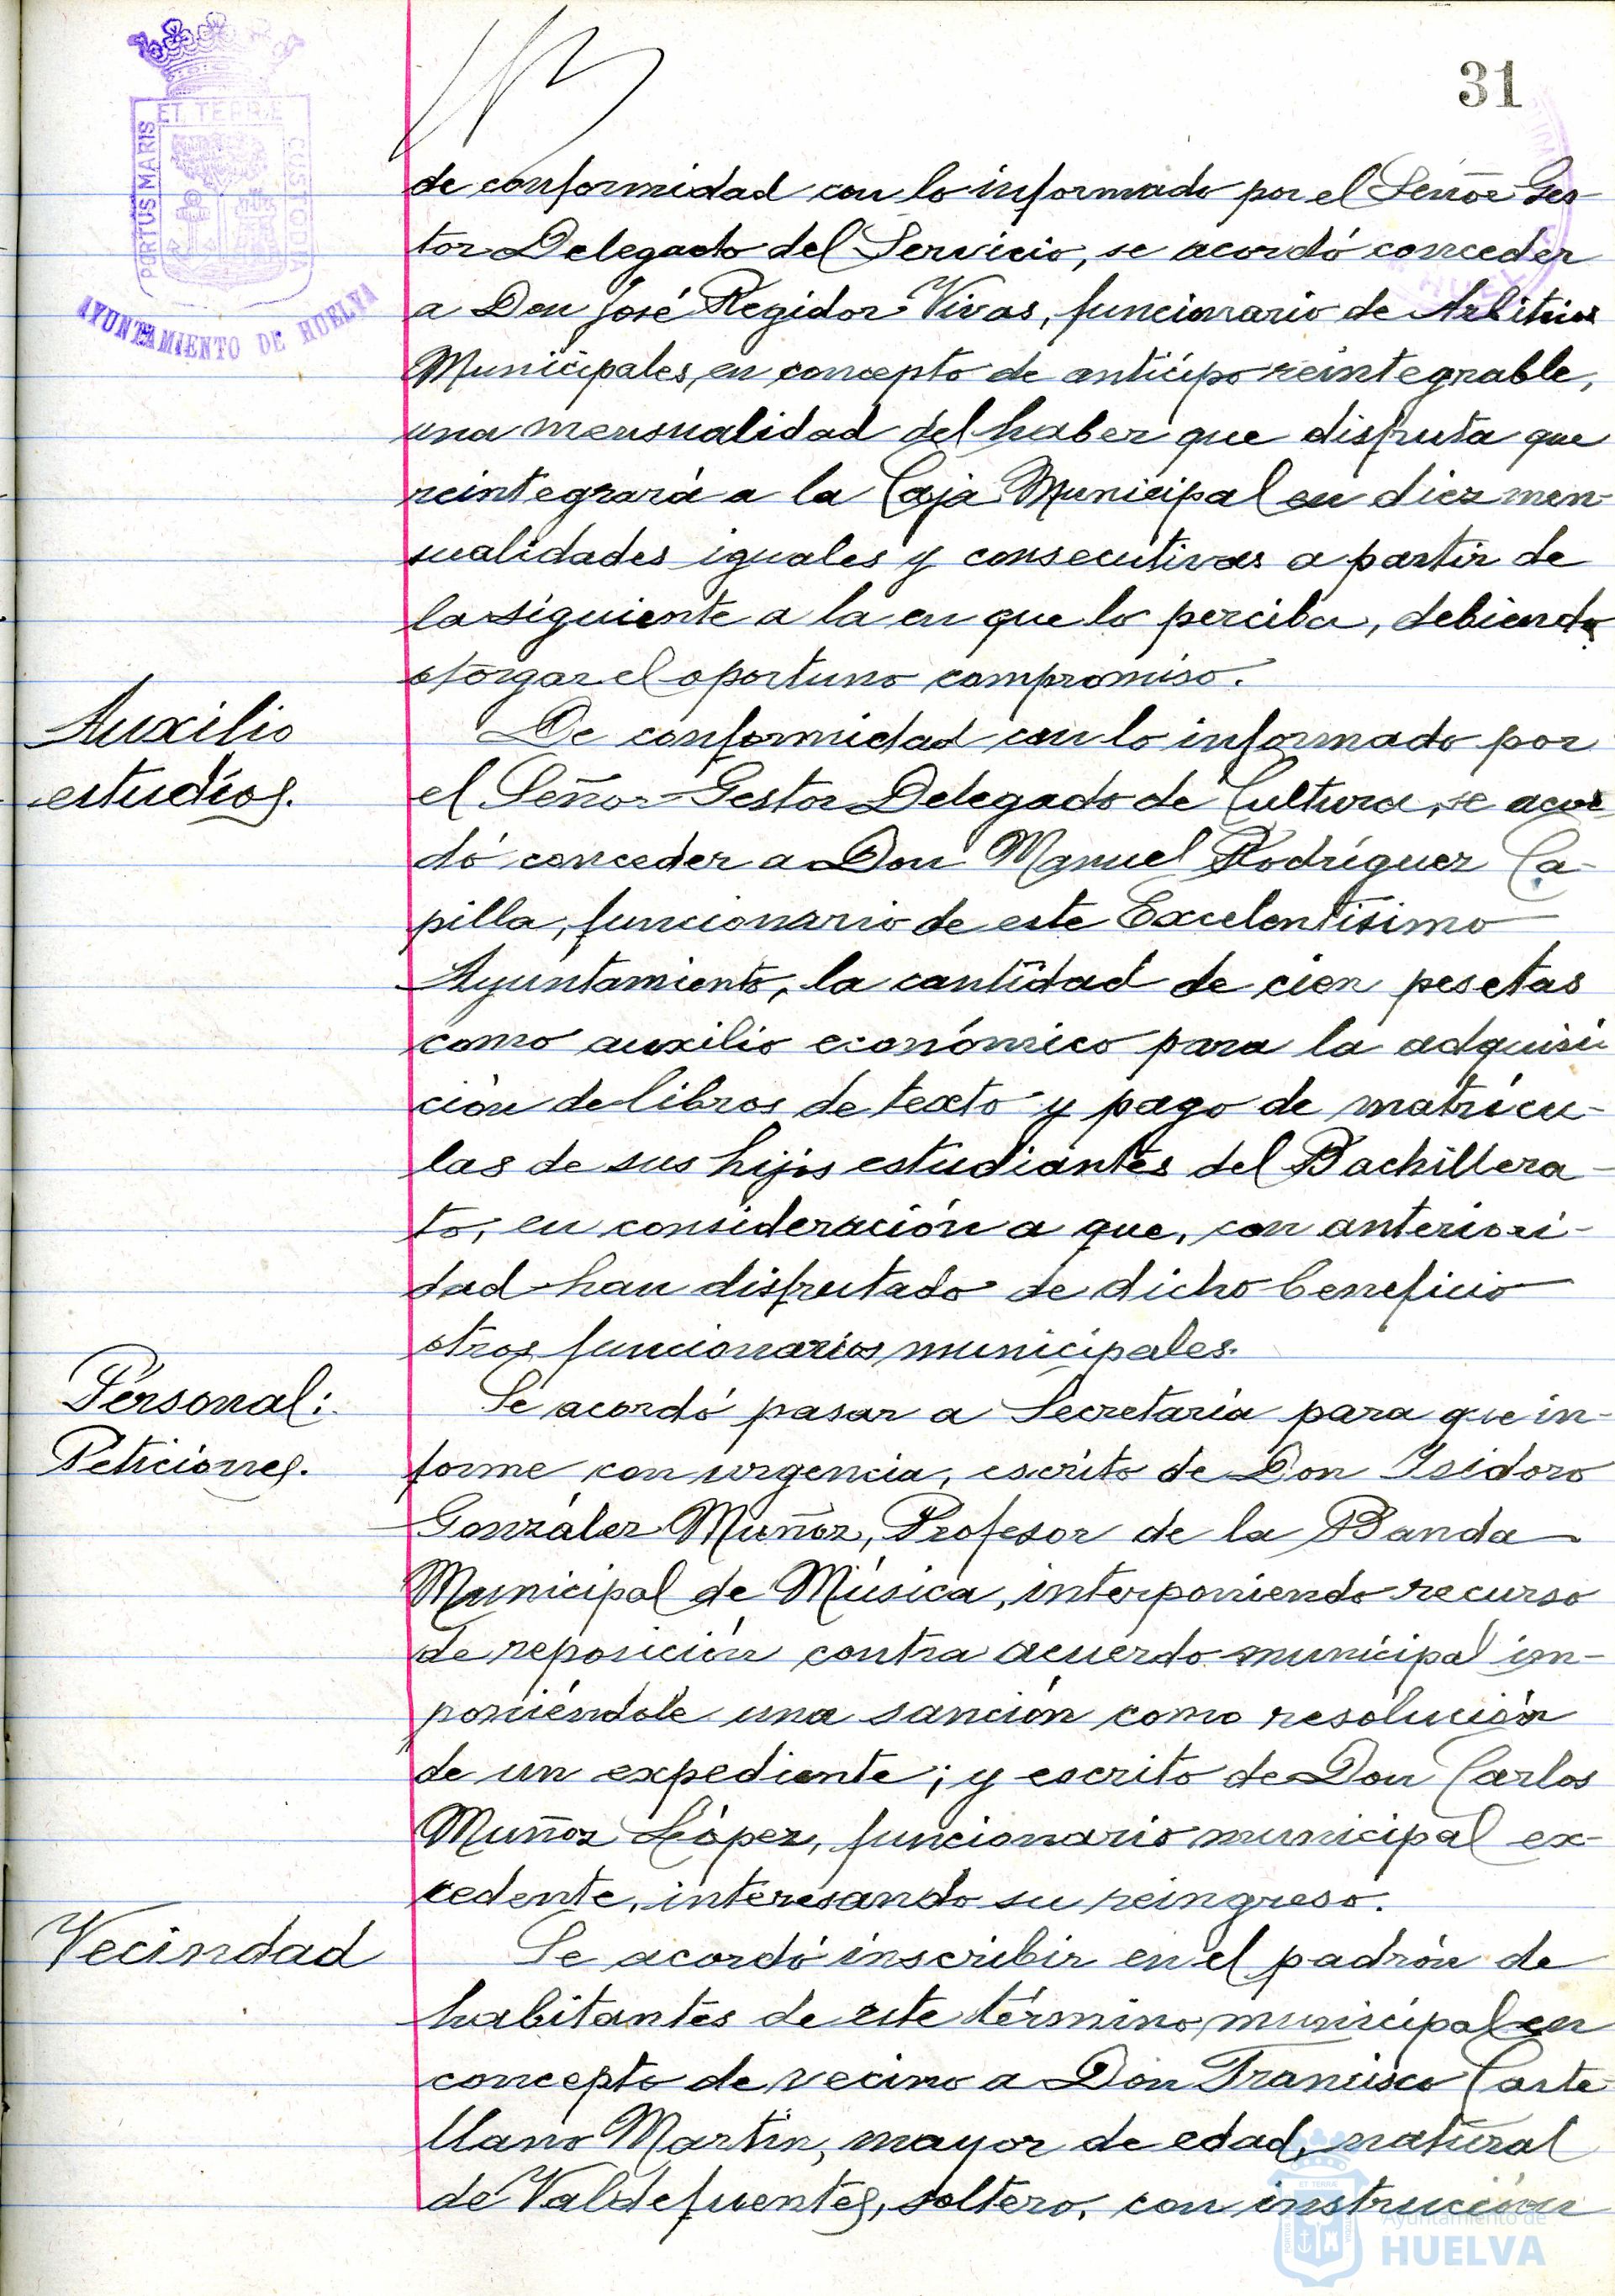 31
ET TERRÆ
PORTUS MARIS
CUSTODIA
AYUNTAMIENTO DE HUELVA
de conformidad con lo informado por el Señor Ges-
tor Delegado del Servicio, se acordó conceder
a Don José Regidor Vivas, funcionario de Arbitrios
Municipales, en concepto de anticipo reintegrable,
una mensualidad del haber que disfruta que
reintegrará a la Caja Municipal en diez men-
sualidades iguales y consecutivas a partir de
la siguiente a la en que lo perciba, debiendo
otorgar el oportuno compromiso.
Auxilio
estudios.
De conformidad con lo informado por
el Señor Gestor Delegado de Cultura, se acor-
dó conceder a Don Manuel Rodríguez Ca-
pilla, funcionario de este Excelentísimo
Ayuntamiento, la cantidad de cien pesetas
como auxilio económico para la adquisi-
ción de libros de texto y pago de matrícu-
las de sus hijos estudiantes del Bachillera-
to, en consideración a que, con anteriori-
dad han disfrutado de dicho beneficio
otros funcionarios municipales.
Personal:
Peticiones.
Se acordó pasar a Secretaría para que in-
forme con urgencia, escrito de Don Isidoro
González Muñoz, Profesor de la Banda
Municipal de Música, interponiendo recurso
de reposición contra acuerdo municipal im-
poniéndole una sanción como resolución
de un expediente; y escrito de Don Carlos
Muñoz López, funcionario municipal ex-
cedente, interesando su reingreso.
Vecindad
Se acordó inscribir en el padrón de
habitantes de este término municipal en
concepto de vecino a Don Francisco Caste-
llano Martín, mayor de edad, natural
de Valdefuentes, soltero, con instrucción
Ayuntamiento de
HUELVA